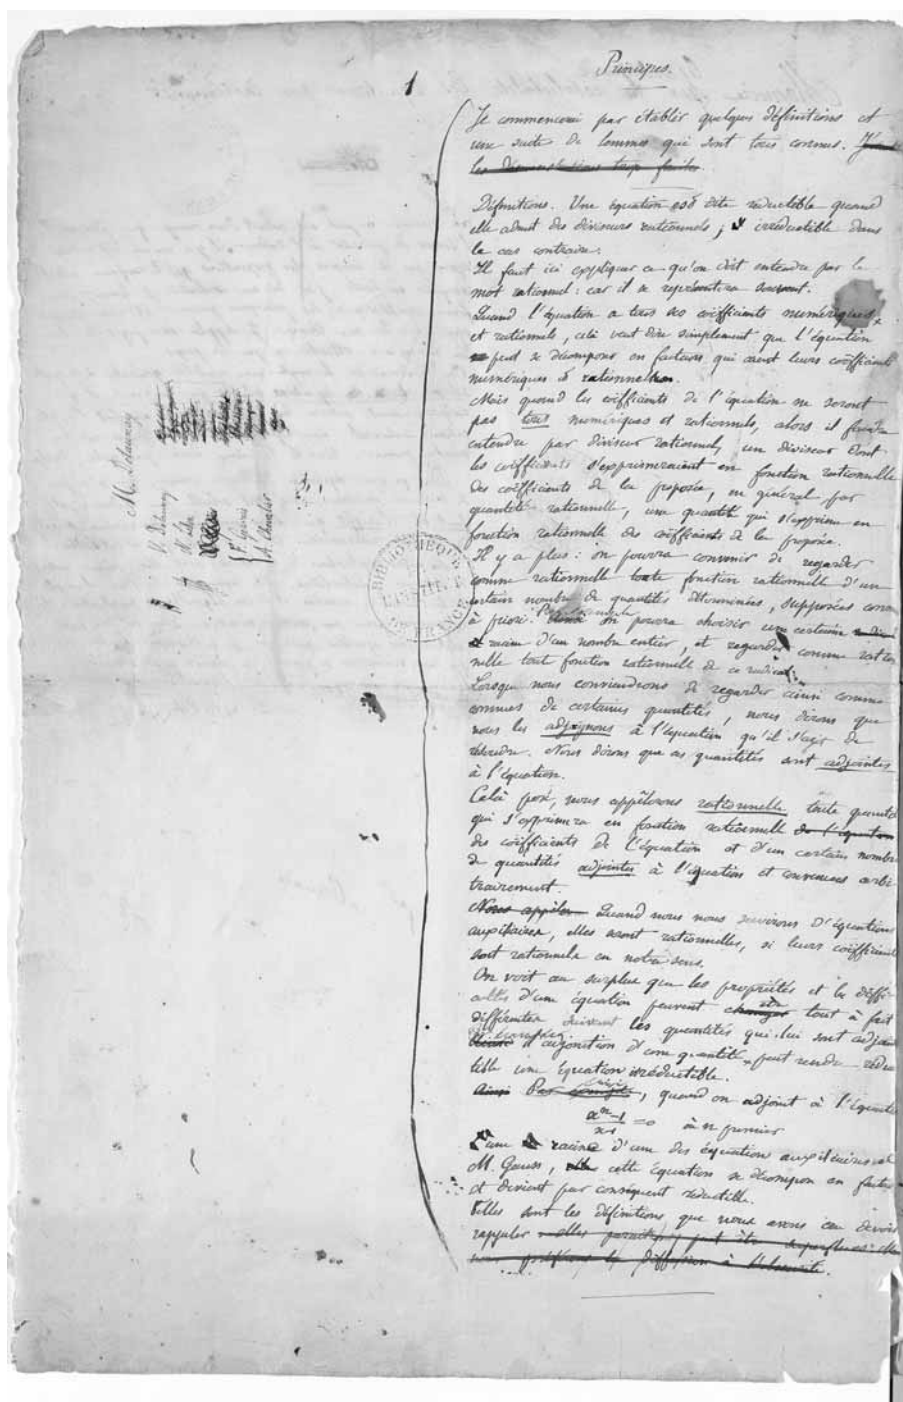 1
Principes.
Je commencerai par établir quelques définitions et
une suite de lemmes qui sont tous connus.
Définitions. Une équation est dite réductible quand
elle admet des diviseurs rationnels ; irréductible dans
le cas contraire.
Il faut ici expliquer ce qu'on doit entendre par le
mot rationnel : car il se représentera souvent.
Quand l'équation a tous ses coëfficients numériques
et rationnels, celà veut dire simplement que l'équation
peut se décomposer en facteurs qui aient leurs coëfficients
numériques & rationnels.
Mais quand les coëfficients de l'équation ne seront
pas tous numériques et rationnels, alors il faudra
entendre par diviseur rationnel, un diviseur dont
les coëfficients s'exprimeraient en fonction rationnelle
des coëfficients de la proposée, en général par
quantité rationnelle, une quantité qui s'exprime en
fonction rationnelle des coëfficients de la proposée.
Il y a plus : on pourra convenir de regarder
comme rationnelle toute fonction rationnelle d'un
certain nombre de quantités déterminées, supposées connues
à priori. Par exemple on pourra choisir une certaine
racine d'un nombre entier, et regarder comme ration
nelle toute fonction rationnelle de ce radical.
Lorsque nous conviendrons de regarder ainsi comme
connues de certaines quantités, nous dirons que
nous les adjoignons à l'équation qu'il s'agit de
résoudre. Nous dirons que ces quantités sont adjointes
à l'équation.
Celà posé, nous appèlerons rationnelle toute quantité
qui s'exprimera en fonction rationnelle de l'équation
des coëfficients de l'équation et d'un certain nombre
de quantités adjointes à l'équation et convenues arbi
trairement.
Nous appèler Quand nous nous servirons d'équations
auxiliaires, elles seront rationnelles, si leurs coëfficients
sont rationnels en notre sens.
On voit au surplus que les propriétés et les diffi
cultés d'une équation peuvent être tout à fait
différentes suivant les quantités qui lui sont adjointes
l'adjonction d'une quantité peut rendre réduc
tible une équation irréductible.
Ainsi quand on adjoint à l'équation
xⁿ-1/x-1 = 0 où n premier
une racine d'une des équations auxiliaires de
M. Gauss, cette équation se décompose en facteurs
et devient par conséquent réductible.
Telles sont les définitions que nous avons cru devoir
rappeler
M. Delaunay
V. Delaunay
BIBLIOTHEQUE
DE FRANCE